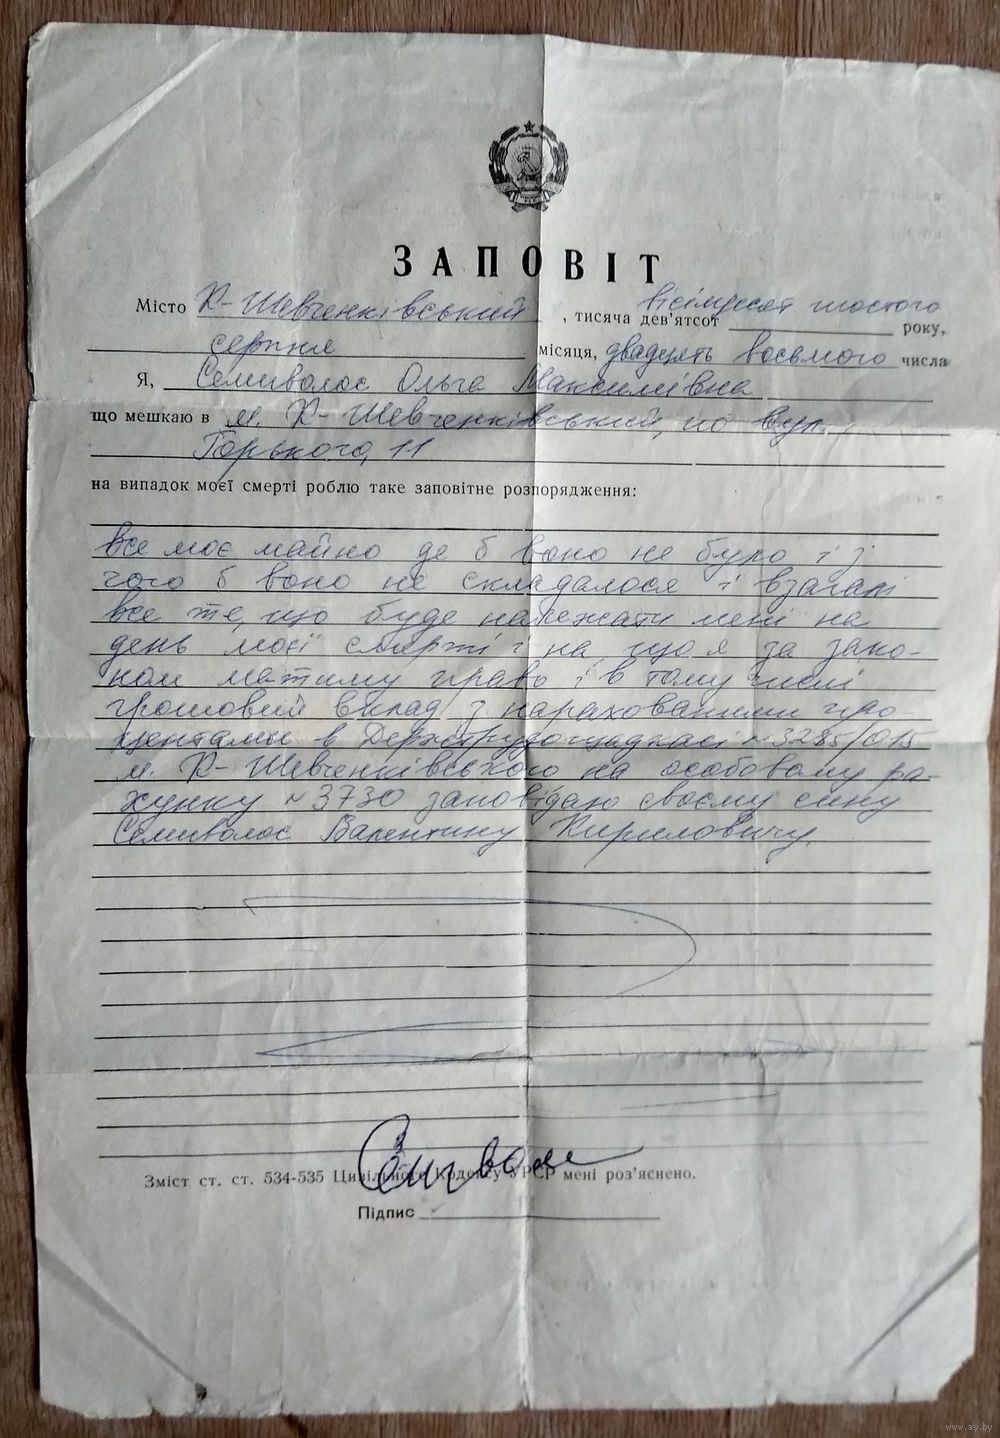 ЗАПОВІТ
Місто К-Шевченківський, тисяча дев'ятсот вісімдесят шостого року,
серпня місяця, двадцять восьмого числа
Я, Семиволос Ольга Максимівна
що мешкаю в м. К-Шевченківський, по вул.
Горького, 11
на випадок моєї смерті роблю таке заповітне розпорядження:
все моє майно де б воно не було і з
чого б воно не складалося і взагалі
все те, що буде належати мені на
день моєї смерті і на що я за зако-
ном матиму право і в тому числі
грошовий вклад з нарахованими про-
центами в Держтрудощадкасі №3285/015
м. К-Шевченківського на особовому ра-
хунку №3730 заповідаю своєму сину
Семиволос Валентину Кириловичу.
Зміст ст. ст. 534-535 Цивільного Кодексу УРСР мені роз'яснено.
Підпис
www.ay.by